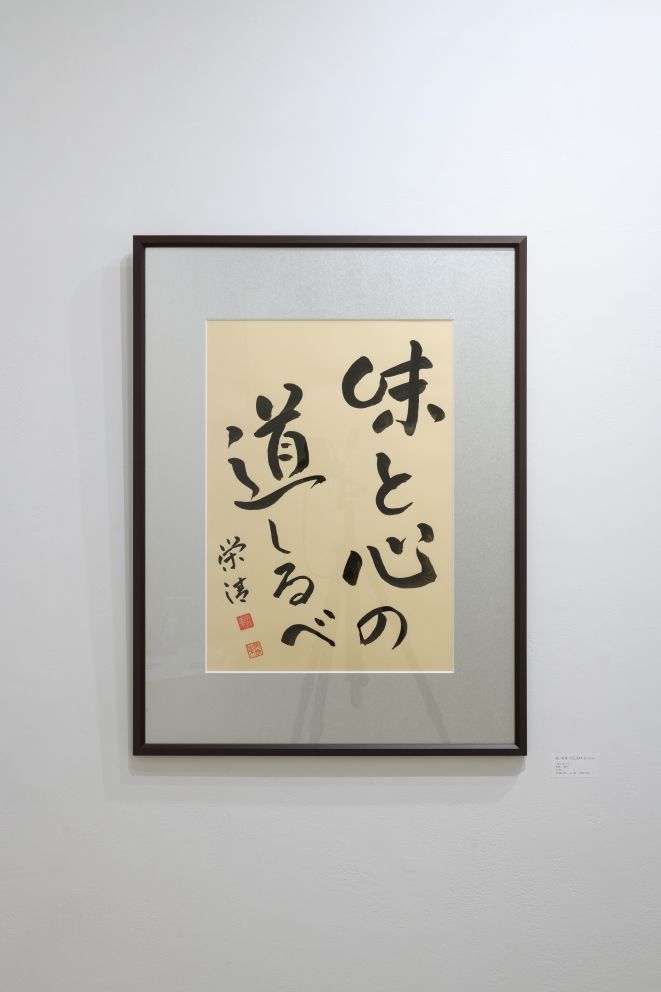 味と心の
道しるべ
栄清